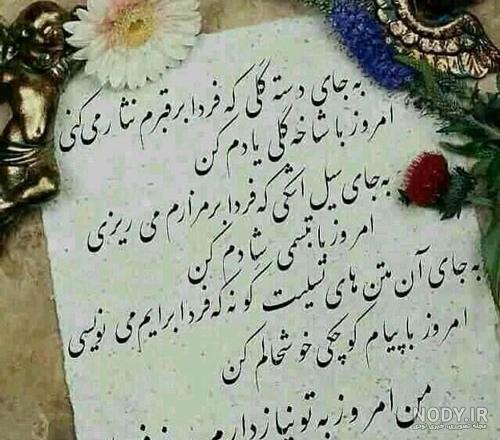 به جای دسته گلی که فردا بر قبرم نثار می‌کنی
امروز با شاخه گلی یادم کن
به جای سیل اشکی که فردا بر مزارم می ریزی
امروز با تبسمی شادم کن
به جای آن متن های تسلیت گونه که فردا برایم می نویسی
امروز با پیام کوچکی خوشحالم کن
من امروز به تو نیاز دارم
NODY.IR